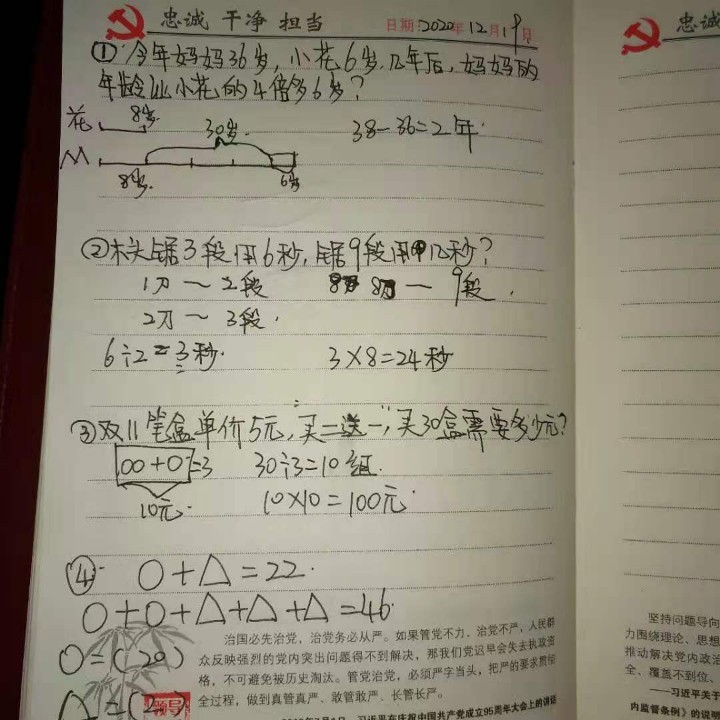 忠诚 干净 担当
日期: 2020年12月19日
忠诚
①今年妈妈36岁,小花6岁.几年后,妈妈的
年龄比小花的4倍多6岁?
8岁.
花
30岁.
38-36=2年.
M
8岁.
6岁.
②木头锯3段用6秒,锯9段用几秒?
1刀~2段
8刀—9段.
2刀~3段.
6÷2=3秒.
3×8=24秒
③双11笔盒单价5元,买二送一,买30盒需要多少元?
○○+○=3
30÷3=10组.
10元.
10×10=100元.
④ ○+△=22.
○+○+△+△+△=46.
○=(20)
△=(2)
领导
治国必先治党,治党务必从严。如果管党不力、治党不严,人民群
众反映强烈的党内突出问题得不到解决,那我们党迟早会失去执政资
格,不可避免被历史淘汰。管党治党,必须严字当头,把严的要求贯彻
全过程,做到真管真严、敢管敢严、长管长严。
习近平在庆祝中国共产党成立95周年大会上的讲话
坚持问题导向
力围绕理论、思想
推动解决党内政治
全、覆盖不到位、
——习近平关于
内监督条例》的说明